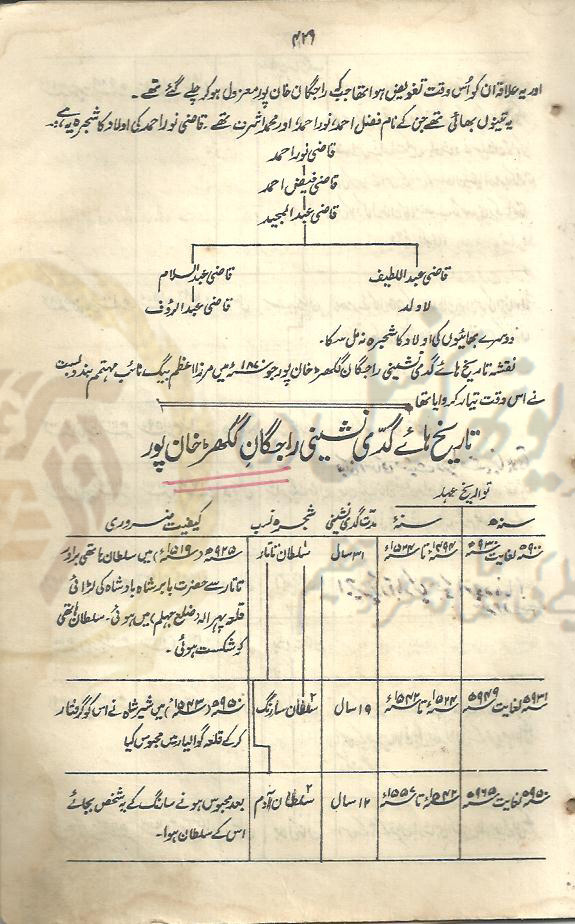 ۴۲۹
اور یہ علاقہ ان کو اُس وقت تفویض ہوا تھا جبکہ راجگان خان پور معزول ہو کر چلے گئے تھے۔
یہ تینوں بھائی تھے جن کے نام فضل احمد، نور احمد، اور محمد اشرف تھے۔ قاضی نور احمد کی اولاد کا شجرہ یہ ہے:۔
قاضی نور احمد
قاضی فیض احمد
قاضی عبد المجید
قاضی عبد اللطیف قاضی عبد السلام
لاولد قاضی عبد الرؤف
دوسرے بھائیوں کی اولاد کا شجرہ نہ مل سکا۔
نقشہ تاریخ ہائے گدی نشینی راجگان گکھڑ خان پور جو ۱۸۷۰ء میں مرزا اعظم بیگ نائب مہتمم بندوبست
نے اس وقت تیار کروایا تھا
تاریخ ہائے گدّی نشینی راجگانِ گکھڑ خان پور
تواریخ عہد
سنہ ھ سنہء مدت گدی نشینی شجرہ نسب کیفیت ضروری
سنہ ۹۰۰ھ لغایت سنہ ۹۳۰ھ سنہ ۱۴۹۴ء تا سنہ ۱۵۲۴ء ۳۱ سال ۱ سلطان تاتار سنہ ۹۲۵ھ (سنہ ۱۵۱۹ء) میں سلطان ہاتھی برادر
تاتار سے حضرت بابر شاہ بادشاہ کی لڑائی
قلعہ پھرالہ (ضلع جہلم) میں ہوئی۔ سلطان ہاتھی
کو شکست ہوئی۔
سنہ ۹۳۱ھ لغایت سنہ ۹۴۹ھ سنہ ۱۵۲۴ء تا سنہ ۱۵۴۲ء ۱۹ سال ۲ سلطان سارنگ سنہ ۹۵۰ھ (سنہ ۱۵۴۳ء) میں شیر شاہ نے اس کو گرفتار
کر کے قلعہ گوالیار میں محبوس کیا
سنہ ۹۵۰ھ لغایت سنہ ۹۶۵ھ ۱۲ سال ۲ سلطان آدم بعد محبوس ہونے سارنگ کے یہ شخص بجائے
اس کے سلطان ہوا۔